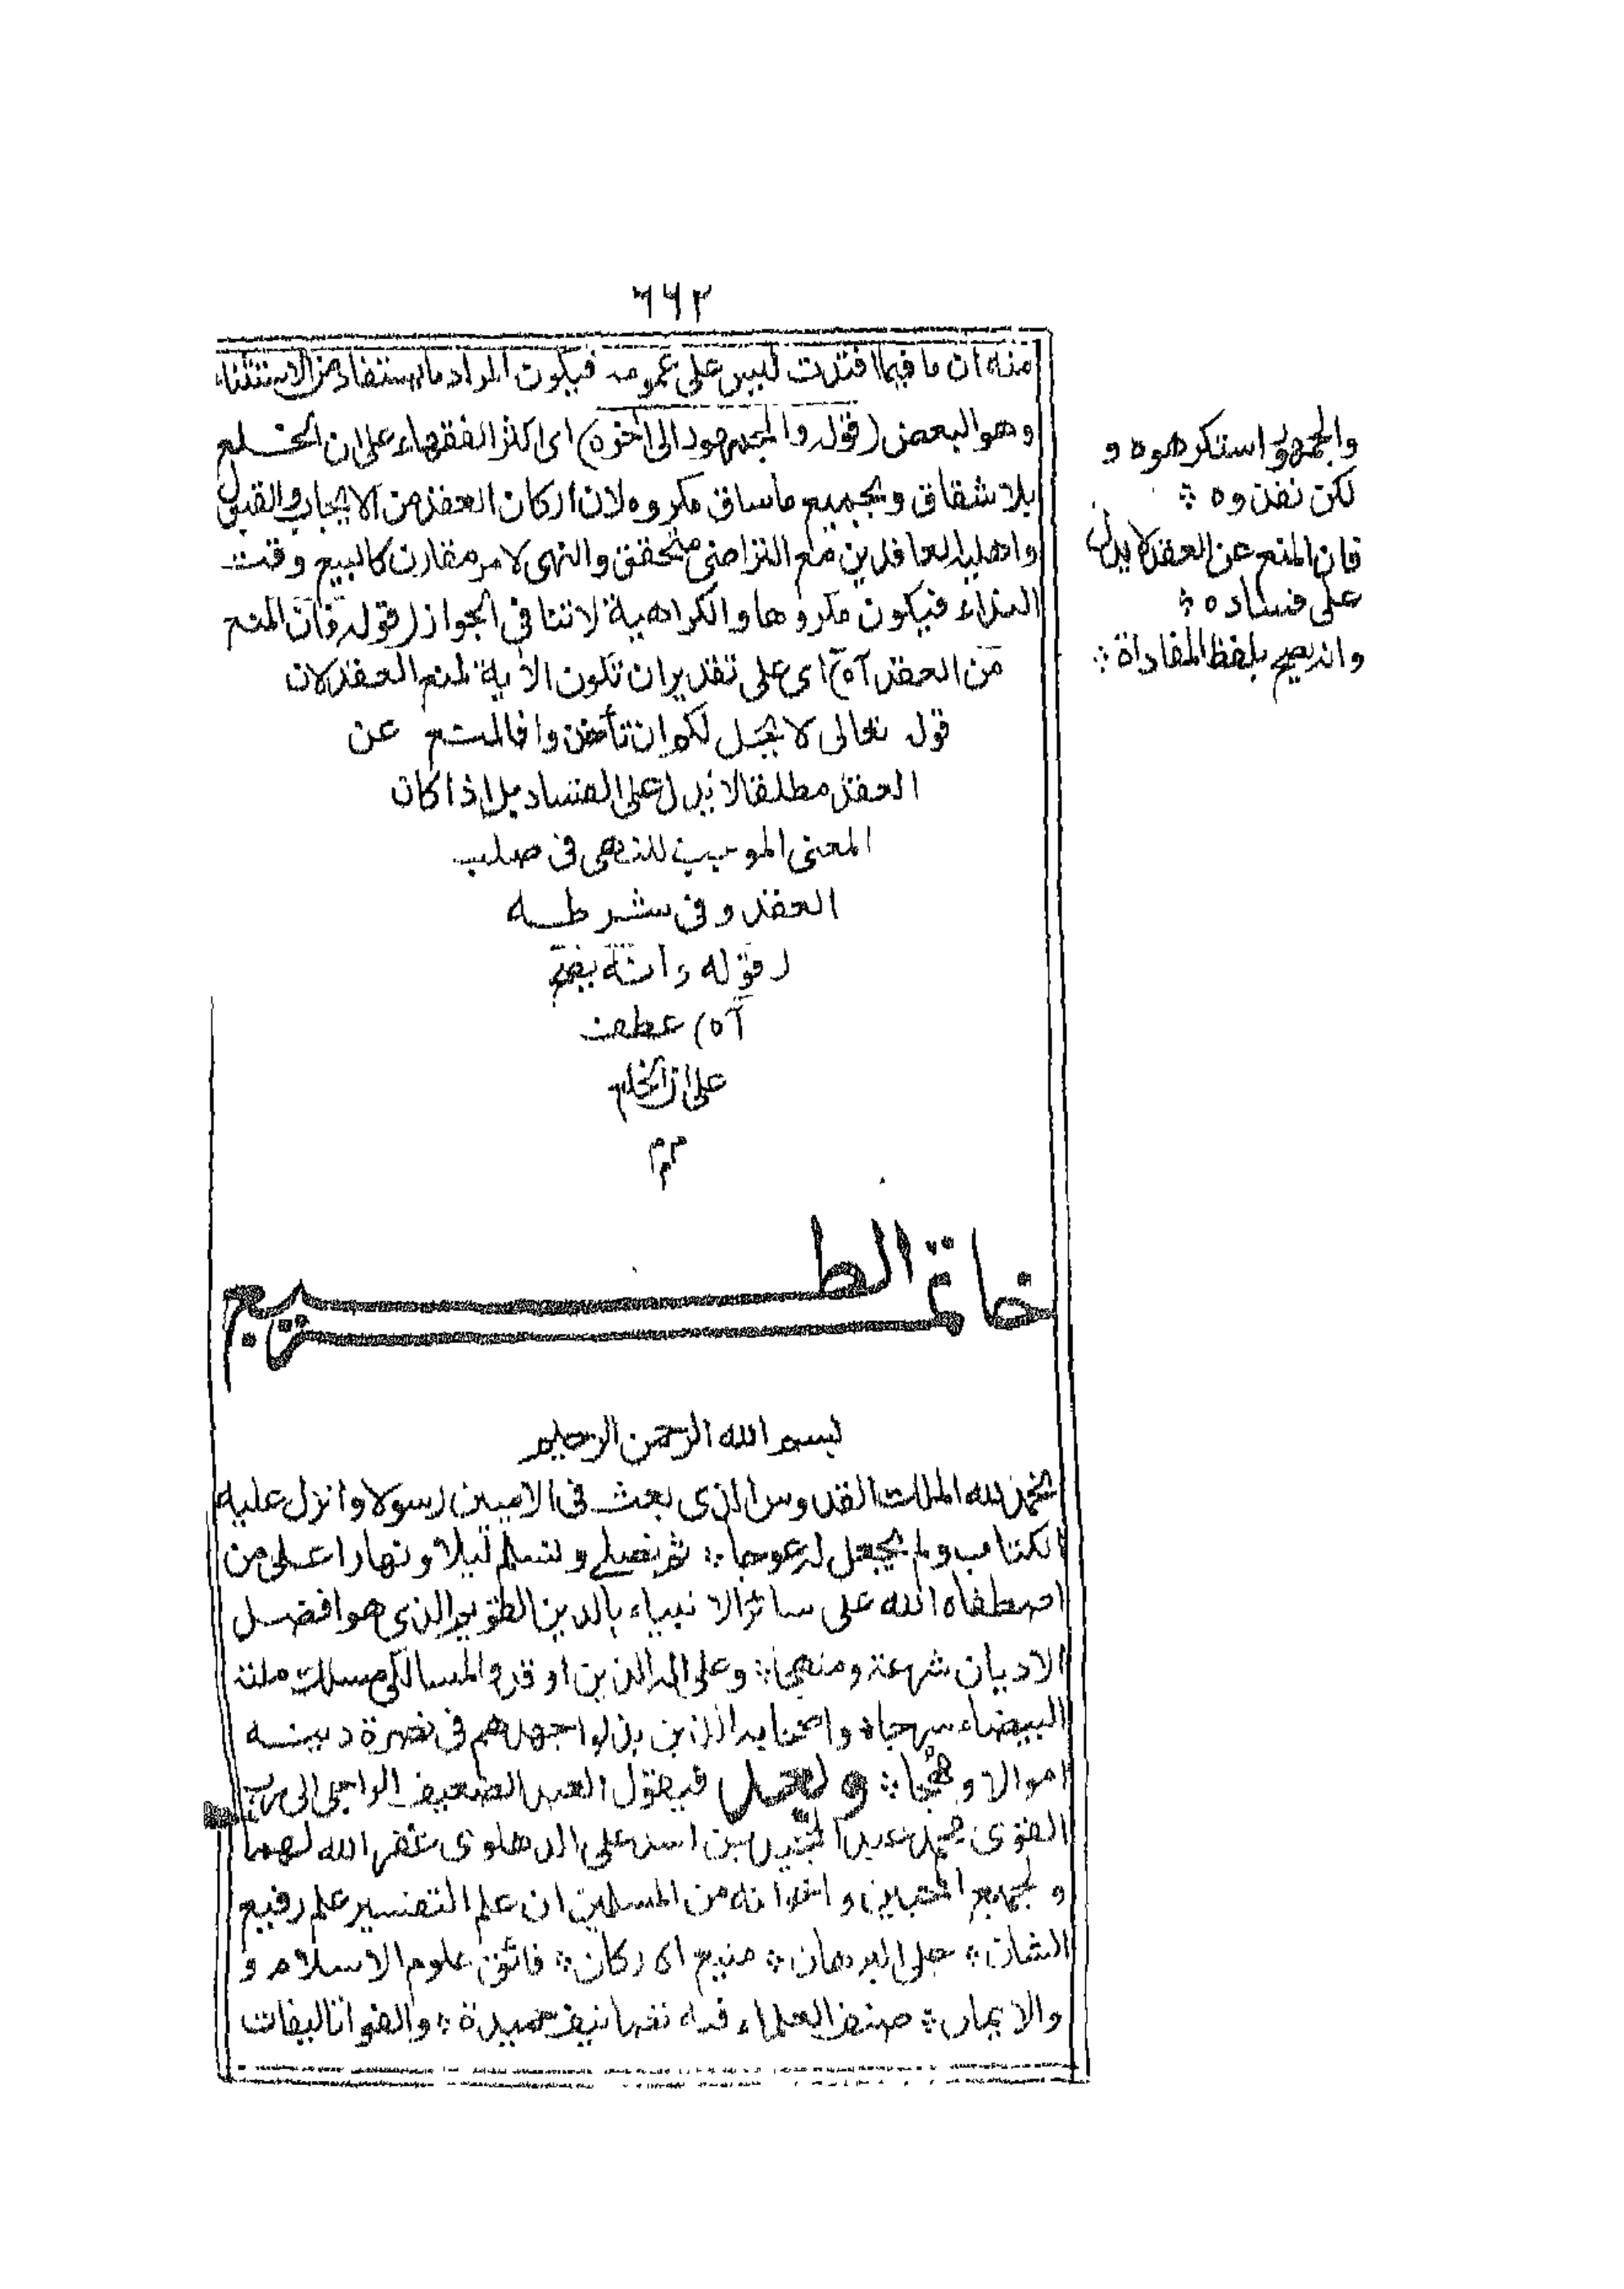 ٦٦٢
منه ان ما فيما افتدت ليس على عمومه فيكون المراد ما يستفاد من الاستثناء
وهو البعض (قوله والجمهور الى آخره) اى اكثر الفقهاء على ان الخلع
بلا شقاق وبجميع ما ساق مكروه لان اركان العقد من الايجاب والقبول
واهلية العاقدين مع التراضى متحقق والنهى لامر مقارن كالبيع وقت
النداء فيكون مكروها والكراهية لا تنافى الجواز (قوله فان المنع
من العقد آه) اى على تقدير ان تكون الآية لمنع العقد لان
قوله تعالى لا يحل لكم ان تأخذوا فالمنع عن
العقد مطلقا لا يدل على الفساد بل اذا كان
المعنى الموجب للنهى فى صلب
العقد و فى شرطه
(قوله وانه يصح
آه) عطف
على ان الخلع
والجمهور استكرهوه و
لكن نفذوه
فان المنع عن العقد لا يدل
على فساده
وانه يصح بلفظ المفاداة
خاتمة الطبع
بسم الله الرحمن الرحيم
الحمد لله الملك القدوس الذى بعث فى الاميين رسولا وانزل عليه
الكتاب ولم يجعل له عوجا ثم نصلے ونسلم ليلا ونهارا على من
اصطفاه الله على سائر الانبياء بالدين القويم الذى هو افضل
الاديان شرعة ومنهجا وعلى اله الذين لمسالك ملته
البيضاء سرجا واصحابه الذين بذلوا جهدهم فى نصرة دينه
اموالا ومهجا وبعد فيقول العبد الضعيف الراجى الى ربه
القوى بن اسد على الدهلوى غفر الله لهما
ولجميع المحبين واخوانه من المسلمين ان علم التفسير علم رفيع
الشان جلى البرهان منيع الاركان فائق علوم الاسلام و
والايمان صنف العلماء فيه تصانيف حميدة والفوا تاليفات